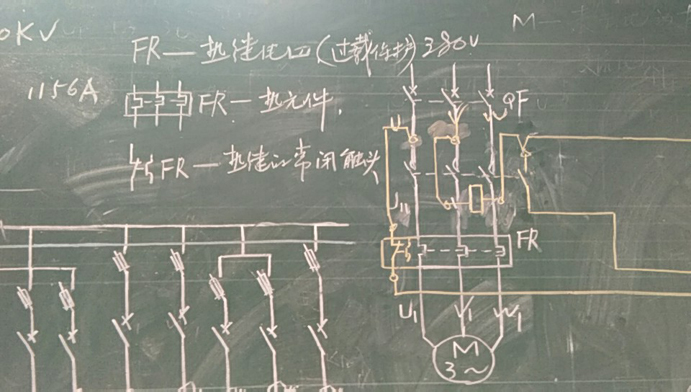 0KV
M—
FR—热继电器(过载保护)380V
1156A
FR—热元件.
QF
U
V
FR—热继的常闭触头
FR
U1
V1
W1
M
3~